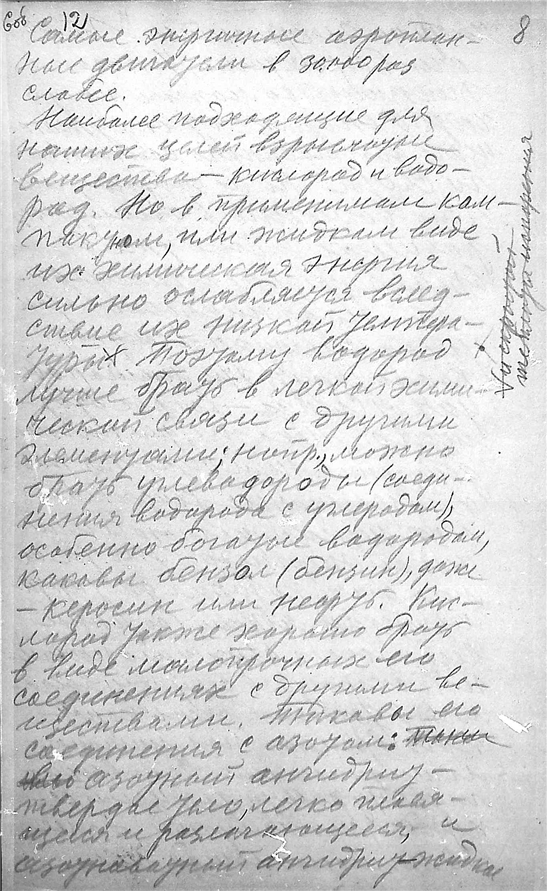 12
8
Самые энергичные аэроплан-
ные двигатели в 30.000 раз
слабее.
Наиболее подходящие для
наших целей взрывчатые
вещества – кислород и водо-
род. Но в применимом ком-
пактном, или жидком виде
их химическая энергия
сильно ослабляется вслед-
ствие их низкой темпера-
туры Поэтому водород
лучше брать в легкой хими-
ческой связи с другими
элементами; напр., можно
брать углеводороды (соеди-
нения водорода с углеродом),
особенно богатые водородом,
каковы бензол (бензин), даже
– керосин или нефть. Кис-
лород также хорошо брать
в виде малопрочных его
соединениях с другими ве-
ществами. Таковы его
соединения с азотом:
азотный ангидрид –
твердое тело, легко плавя-
щееся и разлагающееся, и
азотноватый ангидрид – жидкое
и скрытой
теплоты испарения